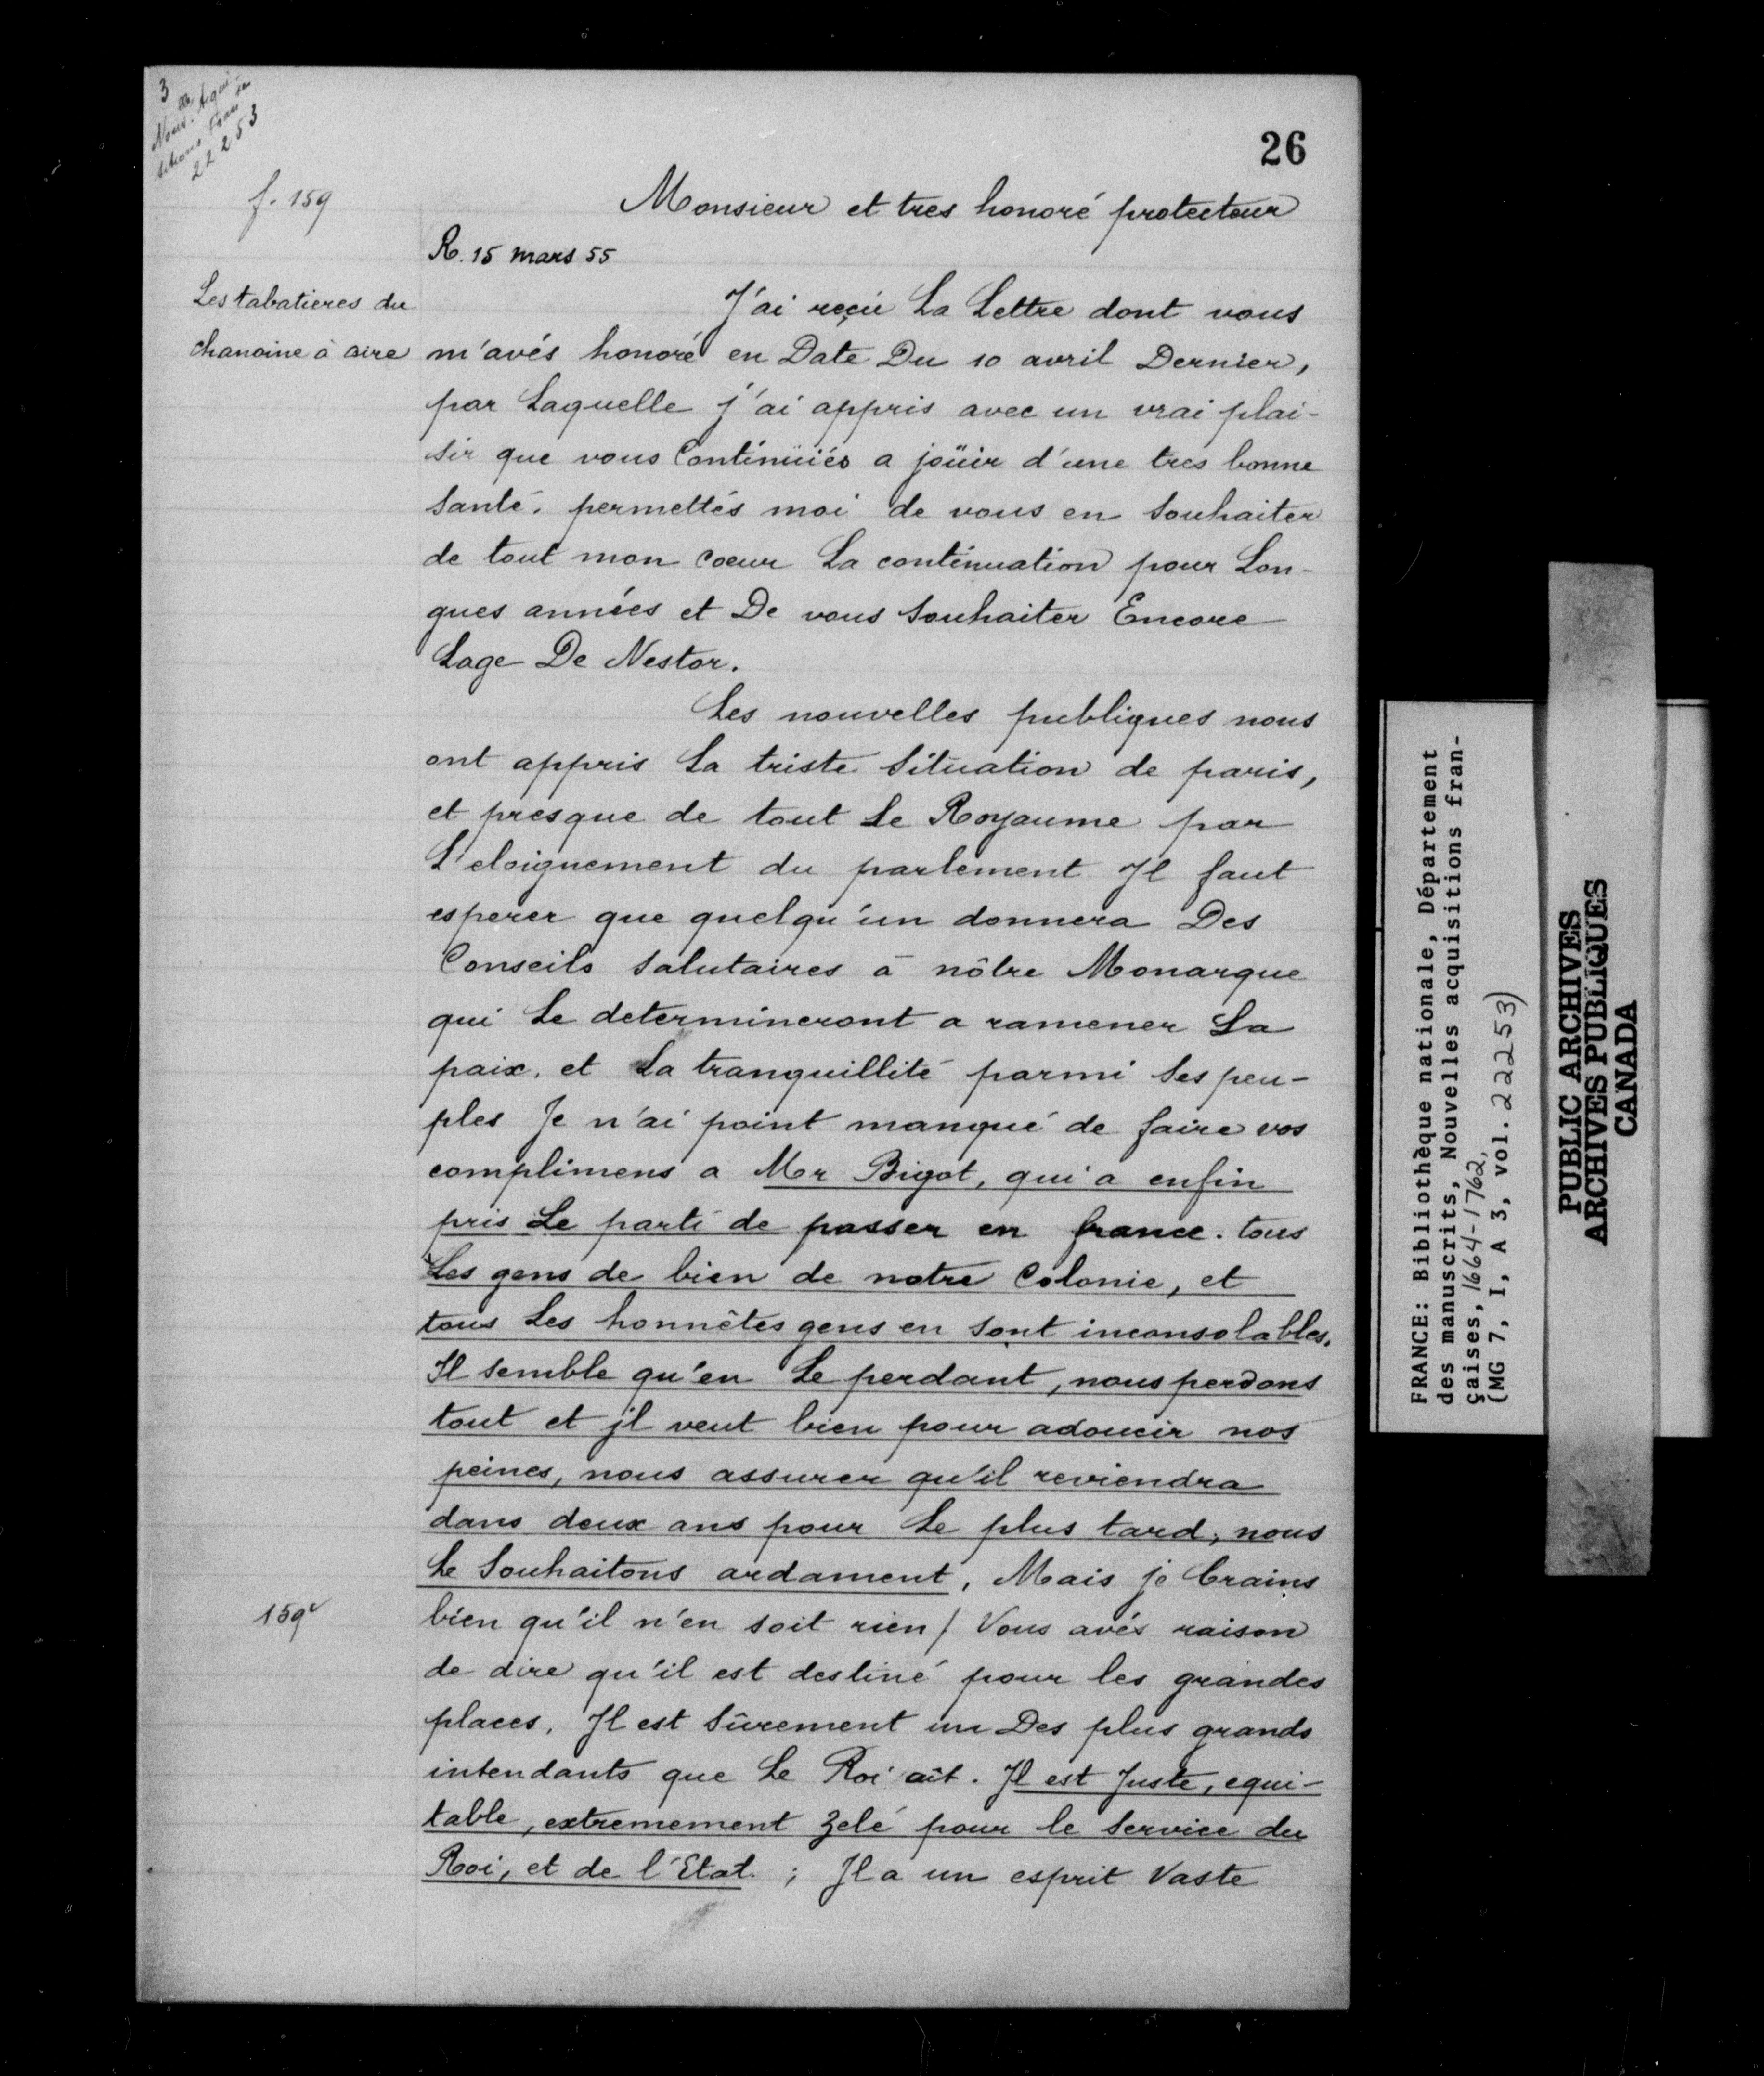 3
Nouv. Acqui-
sitions Fran
22253
26
f. 159
Monsieur et tres honoré protecteur
R. 15 mars 55
Les tabatieres du
chanoine à aire
J'ai reçû La Lettre dont vous
m'avés honoré en Date Du 10 avril Dernier,
par Laquelle j'ai appris avec un vrai plai-
sir que vous Continüiés a joüir d'une tres bonne
Santé. permettés moi de vous en Souhaiter
de tout mon coeur La continuation pour Lon-
gues années et De vous Souhaiter Encore
Lage De Nestor.
Les nouvelles publiques nous
ont appris La triste Situation de paris,
et presque de tout Le Royaume par
L'eloignement du parlement Il faut
esperer que quelqu'un donnera Des
Conseils Salutaires à nôtre Monarque
qui Le determineront a ramener La
paix, et La tranquillité parmi Ses peu-
ples Je n'ai point manqué de faire vos
complimens a Mr Bigot, qui a enfin
pris Le parti de passer en france. tous
Les gens de bien de notre Colonie, et
tous Les honnêtes gens en Sont inconsolables.
Il semble qu'en Le perdant, nous perdons
tout et jl veut bien pour adoucir nos
peines, nous assurer qu'il reviendra
dans deux ans pour Le plus tard; nous
Le Souhaitons ardament, Mais je Crains
159v
bien qu'il n'en soit rien / Vous avés raison
de dire qu'il est destiné pour les grandes
places. Il est Sûrement un Des plus grands
intendants que Le Roi aît. Il est Juste, equi-
table, extremement Zelé pour le Service du
Roi, et de l'Etat ; Il a un esprit Vaste
FRANCE: Bibliothèque nationale, Département
des manuscrits, Nouvelles acquisitions fran-
çaises, 1664-1762,
(MG 7, I, A 3, vol. 22253)
PUBLIC ARCHIVES
ARCHIVES PUBLIQUES
CANADA